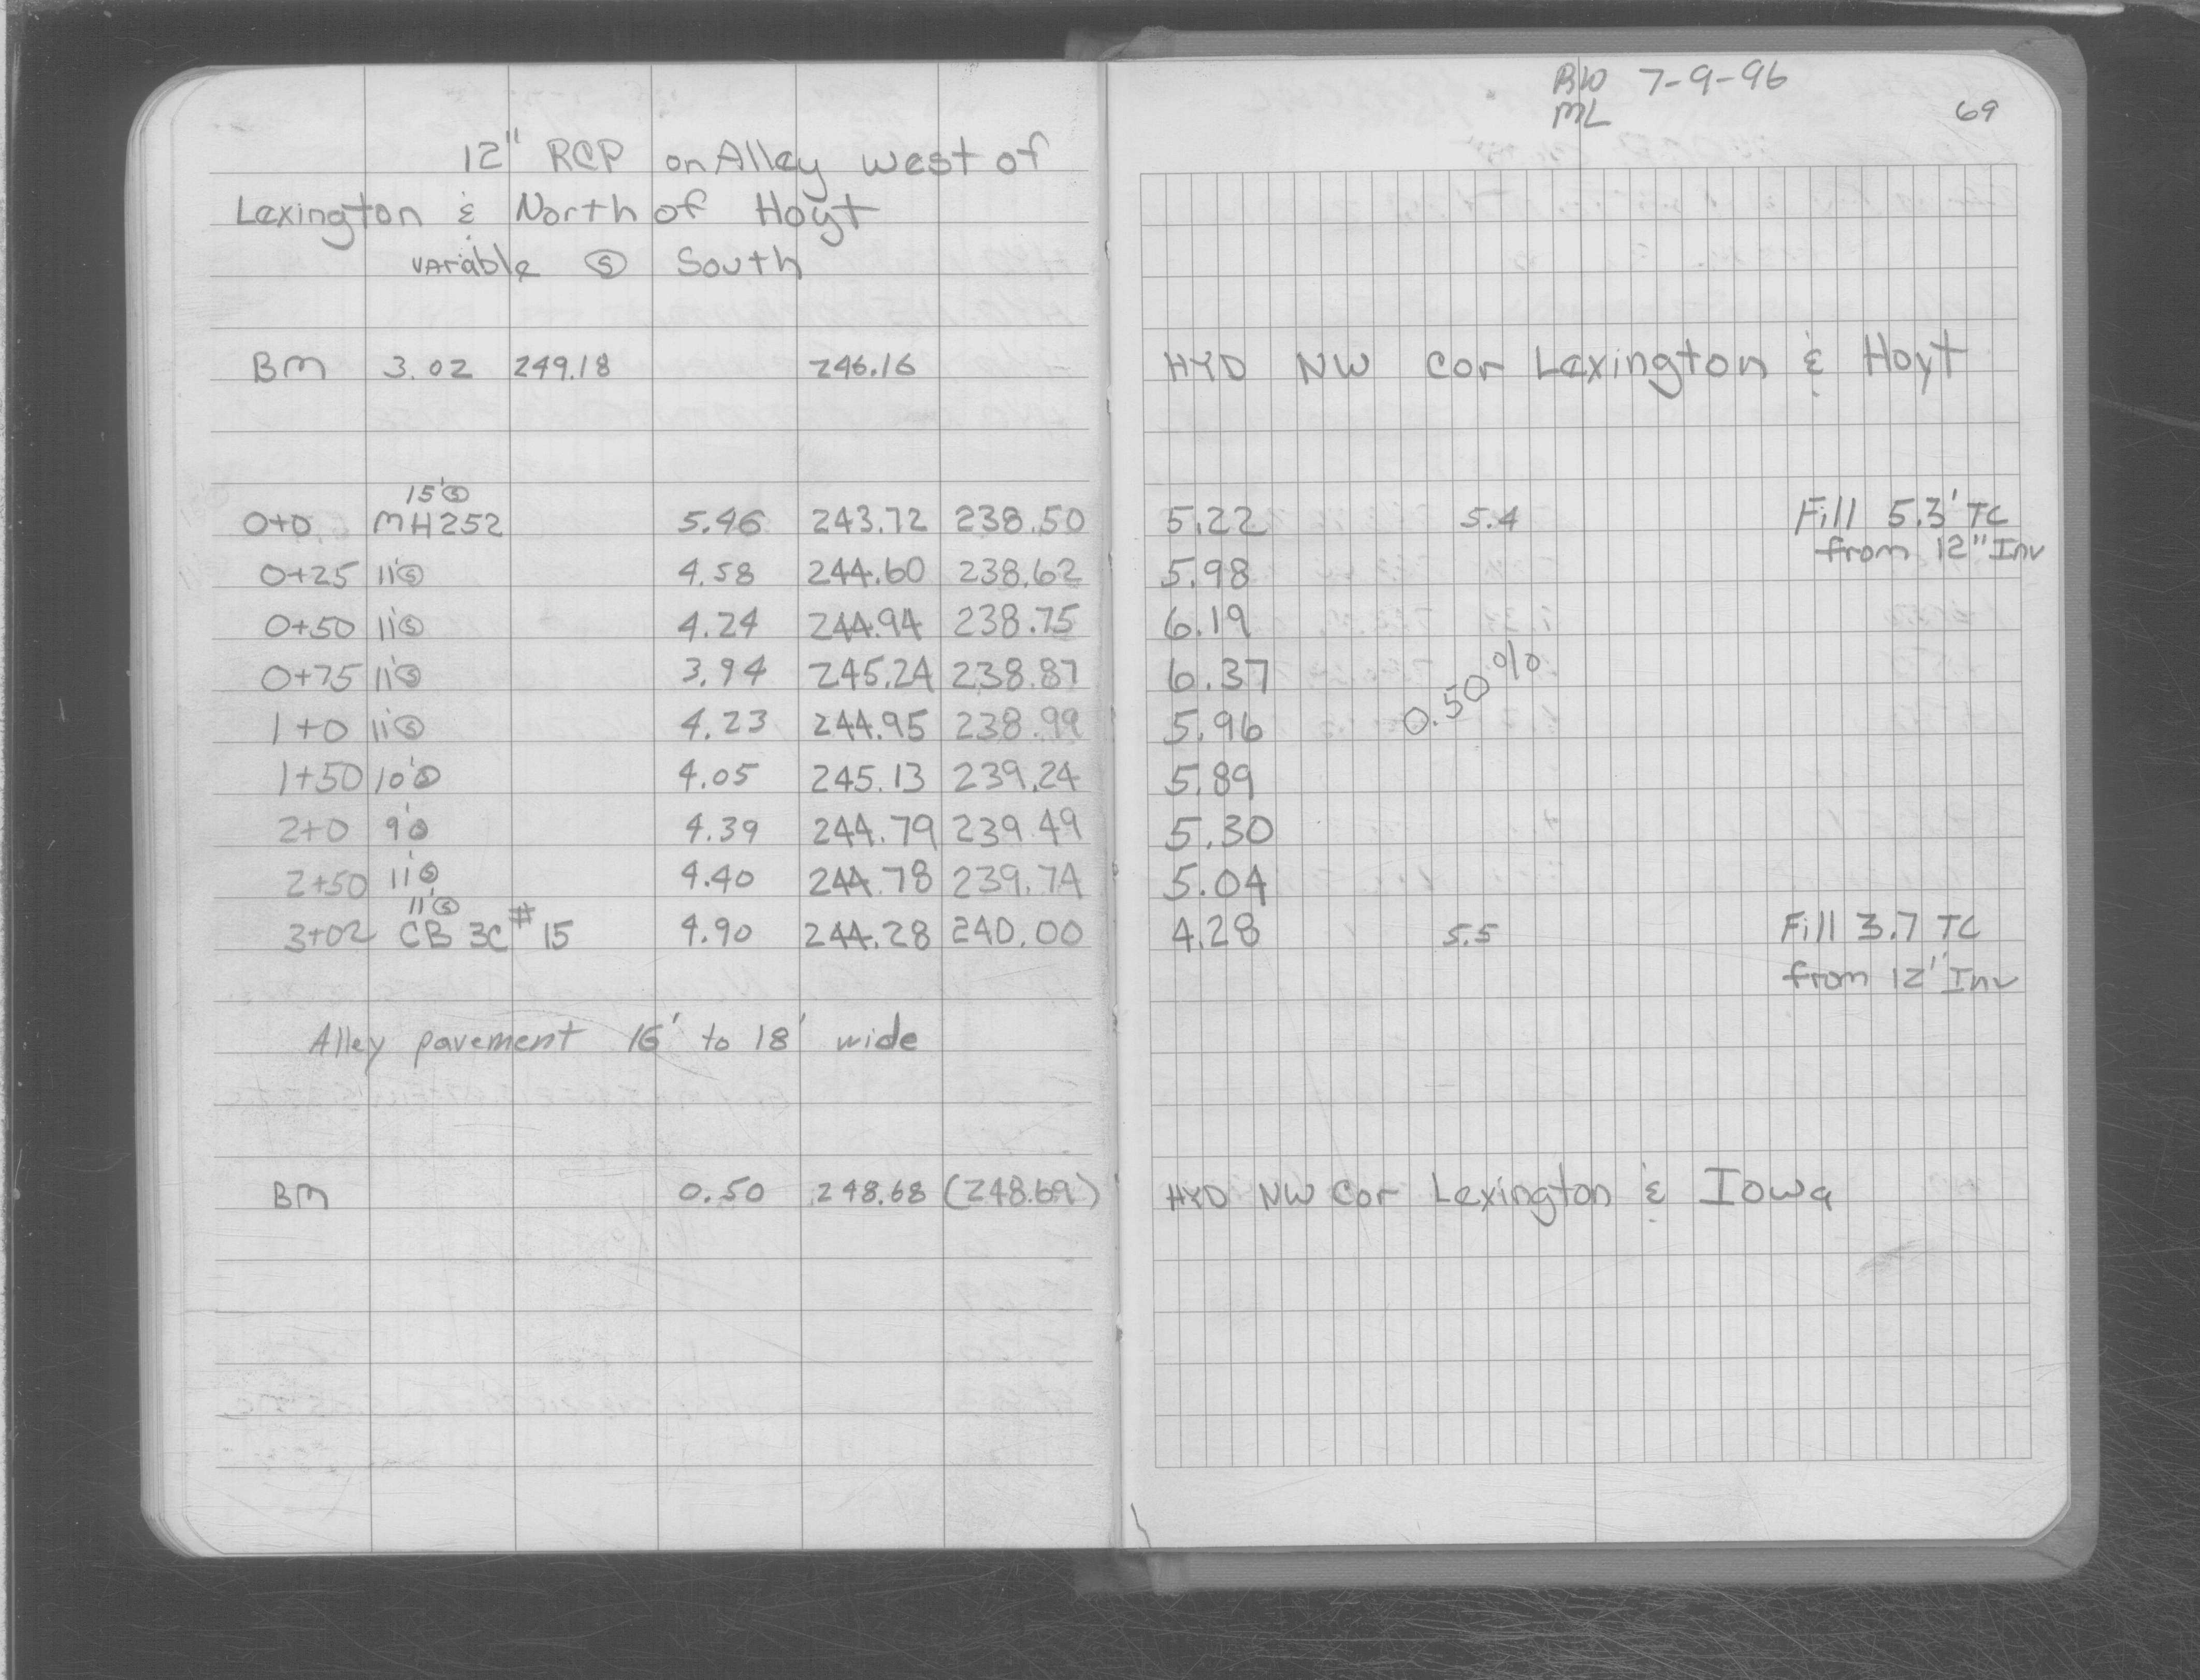 12" RCP on Alley west of
Lexington & North of Hoyt
variable Ⓢ South
BM 3.02 249.18 246.16
15'Ⓢ
0+0 MH252 5.46 243.72 238.50
0+25 11'Ⓢ 4.58 244.60 238.62
0+50 11'Ⓢ 4.24 244.94 238.75
0+75 11'Ⓢ 3.94 245.24 238.87
1+0 11'Ⓢ 4.23 244.95 238.99
1+50 10'Ⓢ 4.05 245.13 239.24
2+0 9'Ⓢ 4.39 244.79 239.49
2+50 11'Ⓢ 4.40 244.78 239.74
11'Ⓢ
3+02 CB 3C #15 4.90 244.28 240.00
Alley pavement 16' to 18' wide
BM 0.50 248.68 (248.69)
BW 7-9-96
ML
69
HYD NW Cor Lexington & Hoyt
5.22 5.4 Fill 5.3' TC
from 12" Inv
5.98
6.19
6.37
0.50%
5.96
5.89
5.30
5.04
4.28 5.5 Fill 3.7 TC
from 12" Inv
HYD NW Cor Lexington & Iowa